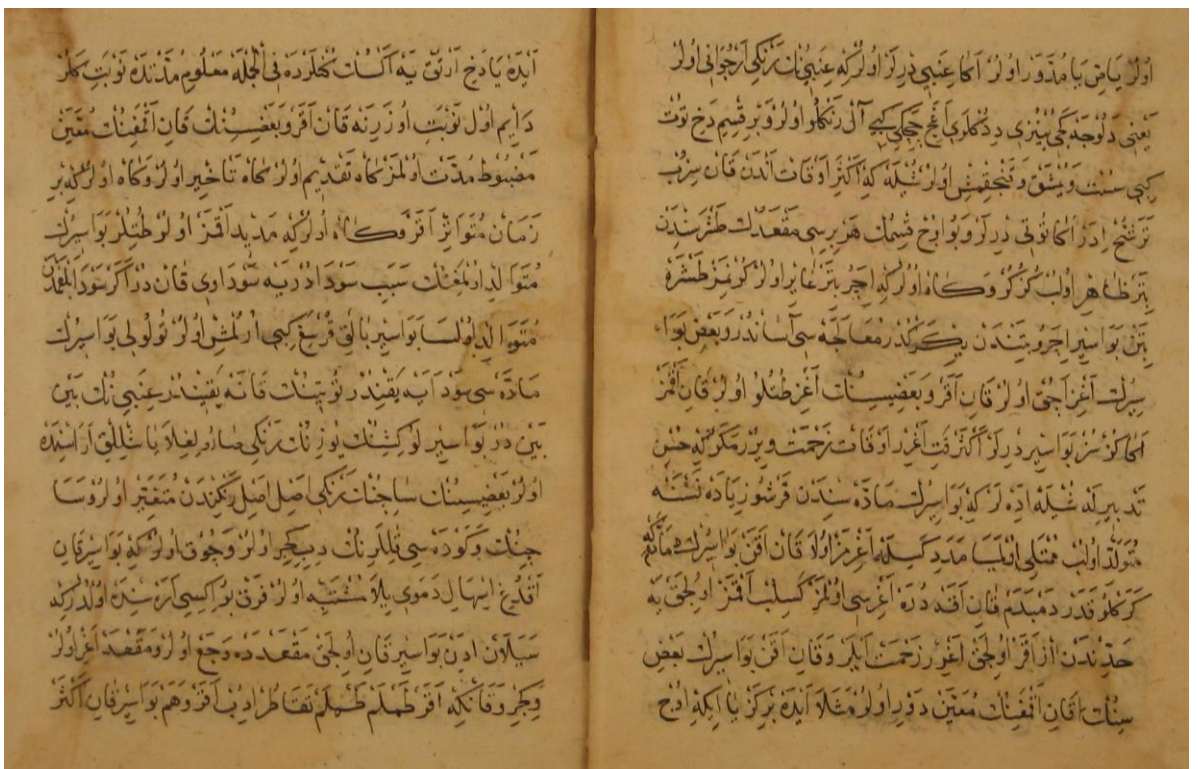 اولر ياض يا مدور اولر اكا عنبي ديرلر اولركه عنبينك رنكي ارجواني اولر
يعني دلوجه كمي بينري ددكلري اغج ججكي كبي آل رنكلو اولر و بر قسم دخ توت
كبي سست و يشق و اولر شيله كه اكثر اوقات اندن قان سزب
ترشح ايدر اكا توتي ديرلر و بو اوج قسمك هر برسي مقعدك طشرسندن
بتر ظاهر اولب كرنر و كاه اولركه اجرو بتر غاير اولر كرنمز طشره
بتن بواسير اجرو بتندن يكركدر معالجه سي آساندر و بعض بوا
سيرك اغز اجق اولر قان اقر و بعضيسنك اغز طتلو اولر قان اقمز
اكا كوزسز بواسير ديرلر اكثر قت اغرر اوقات زحمت ويرر مكركه حسن
تدبيرله شيله اده لركه بواسيرك ماده سندن قرتمز زياده نسنه
متولد اولب ممتلي اولمسا مدد كسيله اغرمز اولا قان اقن بواسيرك دماكه
كركلو قدر دمبدم قان اقه دره اغرسي اولمز كسلب اقمز اولجق يه
حدندن از اقر اولجق اغرر زحمت ايلر و قان اقن بواسيرك بعض
سنك قان اقمغنك معين دوري اولر مثلا آيده بر كز يا ايكه اوج
آيده يا دخ ارتق يه اكسك كجلرده في الجمله معلوم مدتده نوبت كلر
دايم اول نوبت اوزرنه قان اقر و بعضسنك قان اقمغنك معين
مضبوط مدت اولمز كاه تقديم اولر كاه تاخير اولر و كاه اولركه بر
زمان متواتر اقر و كاه اولركه مديد اقمز اولر طتلر بواسيرك
متوالد اولمغنك سبب سودادر يه سوداوي قان در اكر سودا بلغمدن
متوالد اولسا بواسير بالق قرسغ كبي ارلمش اولر تولولي بواسيرك
ماده سي سودايه يقيندر توتينك قانه يقيندر عنبينك بين
بين در بواسيرلو كشنك يوزنك رنكي صارولغلا ياشللق اراسنده
اولر بعضيسنك ساجنك رنكي اصل اصل رنكندن متغير اولر و سا
جنك و كوده سي قللرنك دبي كجر اولر و جوق اولركه بواسير قان
اقدغ اسهال دموي يلا مشتبه اولر فرق بو ايكسي اره سنده اولدركه
سيلان ادن بواسير قان اولجق مقعدده وجع اولر و مقعد اغر اولر
و كجر و قانكه اقر طملم طملم تقاطر ادب اقر و هم بواسير قان اكثر